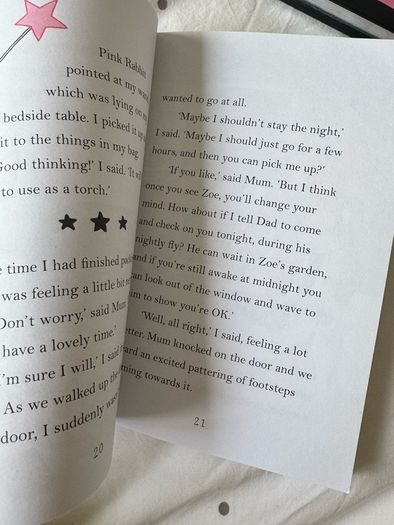 Pink Rabbit
pointed at my
which was lying on my
bedside table. I picked it up
it to the things in my bag.
Good thinking!' I said. 'It
to use as a torch.'
time I had finished
was feeling a little bit
Don't worry,' said Mum
have a lovely time.'
I'm sure I will,' I said
As we walked up the
door, I suddenly
20
wanted to go at all.
'Maybe I shouldn't stay the night,'
I said. 'Maybe I should just go for a few
hours, and then you can pick me up?'
'If you like,' said Mum. 'But I think
once you see Zoe, you'll change your
mind. How about if I tell Dad to come
and check on you tonight, during his
nightly fly? He can wait in Zoe's garden,
and if you're still awake at midnight you
can look out of the window and wave to
him to show you're OK.'
'Well, all right,' I said, feeling a lot
better. Mum knocked on the door and we
heard an excited pattering of footsteps
coming towards it.
21